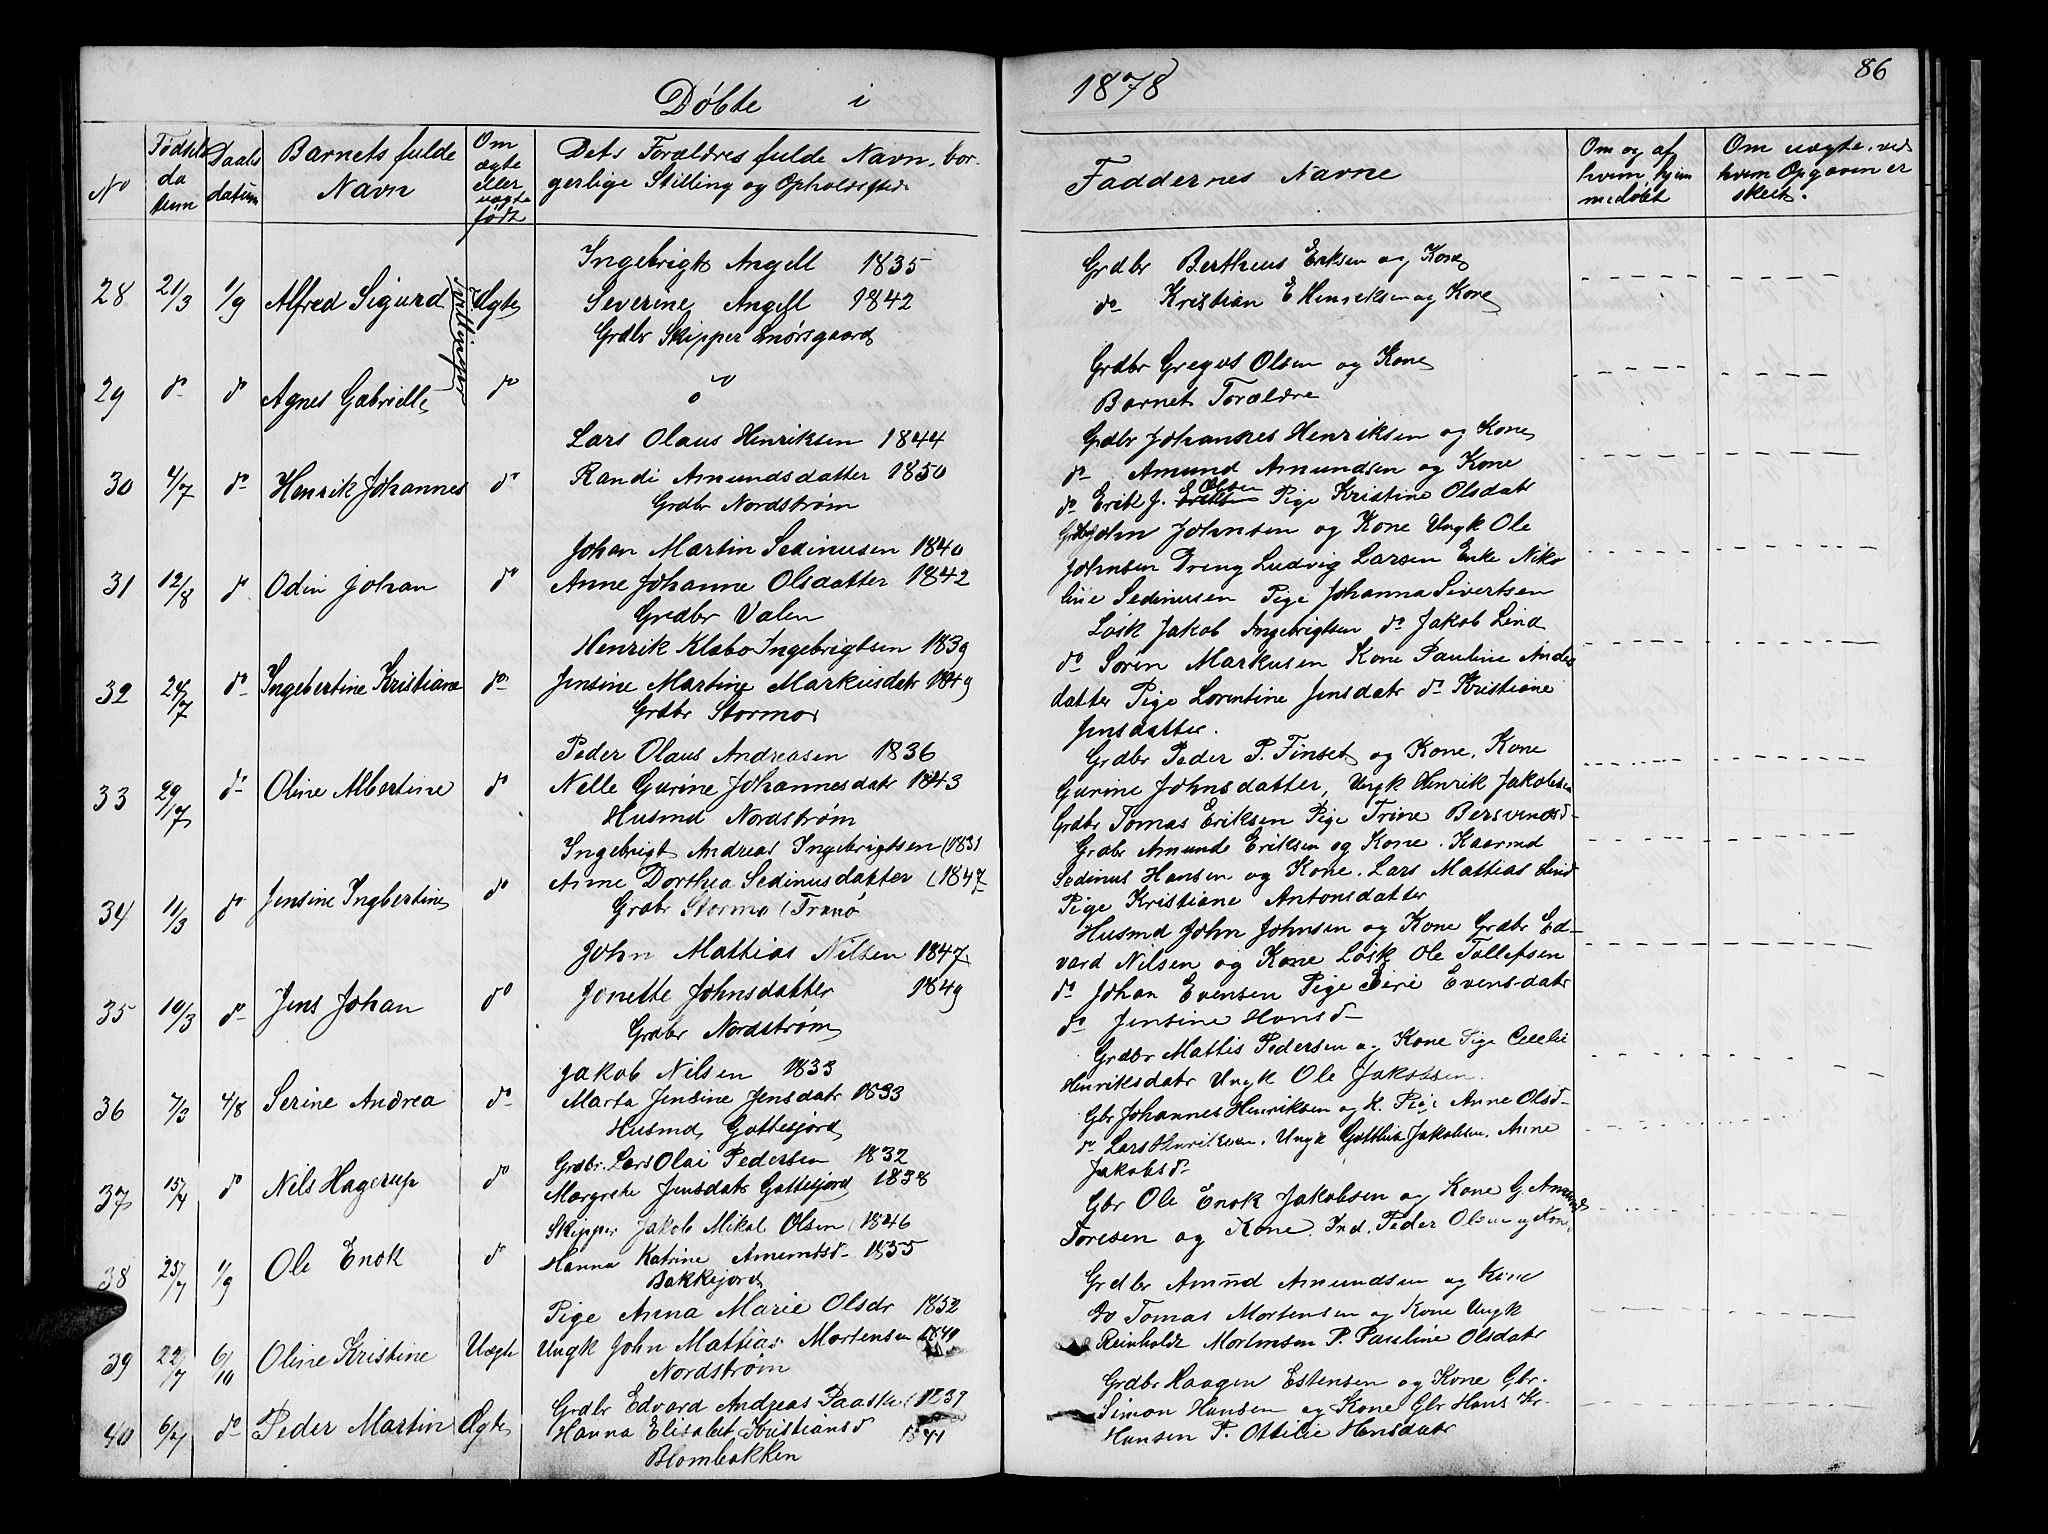 Døbte i
1878
86
No
Fødsels
da
tum
Daabs
datum
Barnets fulde
Navn
Om
ægte
eller
uægte
født
Dets Forældres fulde Navn, bor-
gerlige Stilling og Opholdssted
Faddernes Navne
Om og af
hvem hjem
medøbt
Om uægte, ved
hvem Opgaven er
skeet.
28 21/3 1/9 Alfred Sigurd Ægte
Tvillinger
Ingebrigt Angell 1835
Severine Angell 1842
Grdbr Skipper
Grdbr Bertheus Eriksen og Kone
do Kristian E Henriksen og Kone
29 do do Agnes Gabrielle do
Grdbr Gregers Olsen og Kone
Barnets Forældre
30 4/7 do Henrik Johannes do
Lars Olaus Henriksen 1844
Randi Amundsdatter 1850
Grdbr Nordstrøm
Grdbr Johannes Henriksen og Kone
do Amund Amundsen og Kone
do Erik J. Olsen Pige Kristine Olsdatr
31 12/8 do Odin Johan do
Johan Martin Sedinusen 1840
Anne Johanne Olsdatter 1842
Grdbr Valen
Grdbr John Johnsen og Kone Ungk Ole
Johnsen Dreng Ludvig Larsen Enke Niko
line Sedinusen Pige Johanna Sivertsen
32 24/7 do Ingebertine Kristiane do
Henrik Klabo Ingebrigtsen 1839
Jensine Martine Markusdatr 1849
Grdbr Stormo
Løsk Jakob Ingebrigtsen do Jakob Lind
do Søren Markusen Kone Pauline Anders
datter Pige Lorentine Jensdatr do Kristiane
Jensdatter.
33 29/7 do Oline Albertine do
Peder Olaus Andreasen 1836
Nelle Gurine Johannesdatr 1843
Husmd Nordstrøm
Grdbr Peder P. Finset og Kone, Kone
Gurine Johnsdatter, Ungk Henrik Jakobsen
Grdbr Tomas Eriksen Pige Trine Bersvendsd-
34 11/3 do Jensine Ingbertine do
Ingebrigt Andreas Ingebrigtsen (1831
Anne Dorthea Sedinusdatter (1847
Grdbr Stormo (Tranø
Grdbr Amund Eriksen og Kone. Kaarmd
Sedinus Hansen og Kone. Lars Mattias Lind
Pige Kristiane Antonsdatter
35 10/3 do Jens Johan do
John Mattias Nilsen 1847
Jonette Johnsdatter 1849
Grdbr Nordstrøm
Husmd John Johnsen og Kone Grdbr Ed-
vard Nilsen og Kone Løsk Ole Tollefsen
do Johan Evensen Pige Siri Evensdatr
do Jensine Hansd-
36 7/3 4/8 Serine Andrea do
Jakob Nilsen 1833
Marta Jensine Jensdatr 1833
Husmd Gottesjord
Grdbr Mattis Pedersen og Kone Pige Cecelie
Henriksdatr Ungk Ole Jakobsen.
37 15/4 do Nils Hagerup do
Grdbr. Lars Olai Pedersen 1832
Margrete Jensdatr Gottesjord 1838
Gbr Johannes Henriksen og K. Pige Anne Olsd-
do Lars Henriksen. Ungk Gottlieb Jakobsen, Anne
Jakobsd-
38 25/7 1/9 Ole Enok do
Skipper Jakob Mikal Olsen (1846
Hanna Katrine Amundsd- 1855
Bakkejord
Gbr Ole Enok Jakobsen og Kone G. Amund
Toresen og Kone. Ind. Peder Olsen og Kone
39 22/7 6/10 Oline Kristine Uægte
Pige Anna Marie Olsdr 1852
Ungk John Mattias Mortensen
Nordstrøm
Grdbr Amund Amundsen og Kone
do Tomas Mortensen og Kone Ungk
Reinholdt Mortensen P. Pauline Olsdatr
40 6/7 do Peder Martin Ægte
Grdbr Edvard Andreas Paaske (1839
Hanna Elisabet Kristiansd 1841
Blombakken
Grdbr Haagen Estensen og Kone Gbr.
Simon Hansen og Kone Gbr Hans Kr.
Hansen P. Ottilie Hansdatr